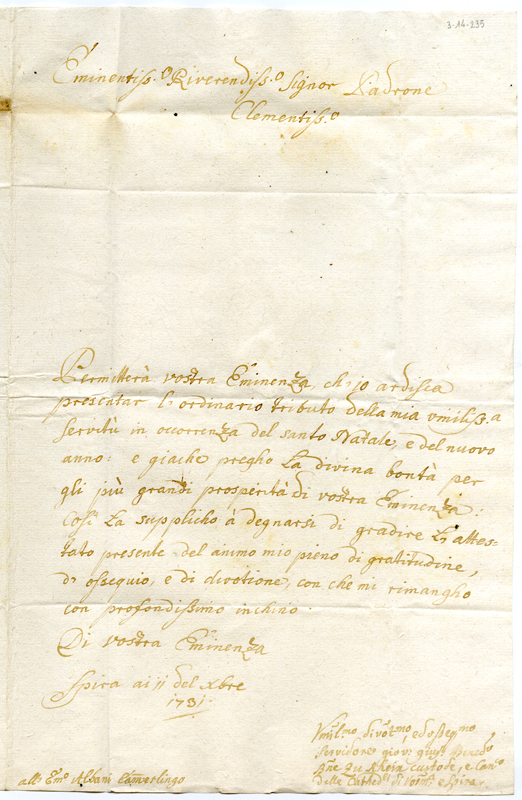 3-14-235
Eminentiss.º Riverendiss.º Signor Padrone
Clementiss.º
Permitterà vostra Eminenza, ch'jo ardisca
presentar l'ordinario tributo della mia vmiliss.a
servitù in occorrenza del santo Natale, e del nuovo
anno: e giache pregho La divina bontà per
gli più grandi prosperità di vostra Eminenza:
Così La supplicho à degnarsi di gradire L'attes-
tato presente del animo mio pieno di gratitudine,
d'ossequio, e di divotione, con che mi rimangho
con profondissimo inchino.
Di vostra Eminenza
Spira ai 11 del Xbre
1731.
Vmilmo, divotmo, ed osseqmo
servidore
custode, e Canco
delle Cathedli di Vorma e Spira.
all' Emo Albani Camerlingo